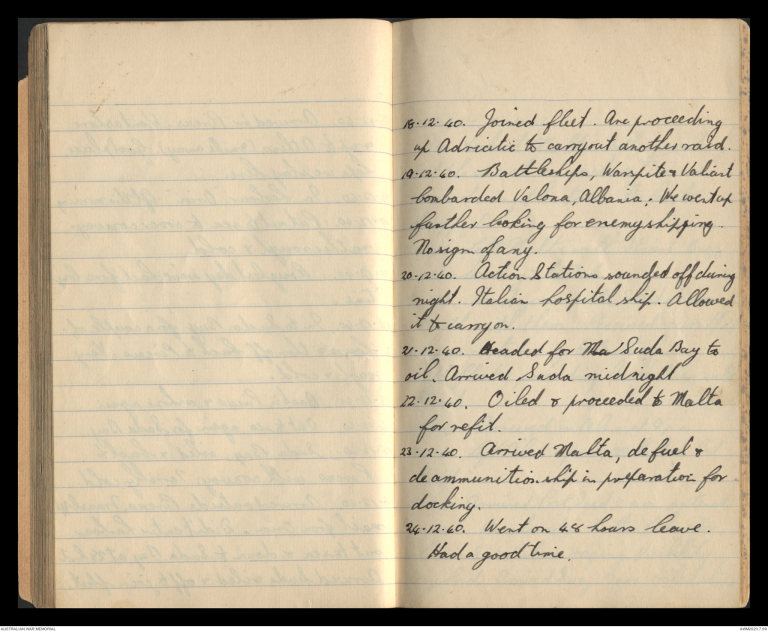 18.12.40. Joined fleet. Are proceeding
up Adriatic to carry out another raid.
19.12.40. Battleships, Warspite & Valiant
bombarded Valona, Albania. We went up
further looking for enemy shipping.
No sign of any.
20.12.40. Action Stations sounded off during
night. Italian hospital ship. Allowed
it to carry on.
21.12.40. Headed for Suda Bay to
oil. Arrived Suda midnight
22.12.40. Oiled & proceeded to Malta
for refit.
23.12.40. Arrived Malta, defuel &
deammunition ship in preparation for
docking.
24.12.40. Went on 48 hours leave.
Had a good time.
AUSTRALIAN WAR MEMORIAL